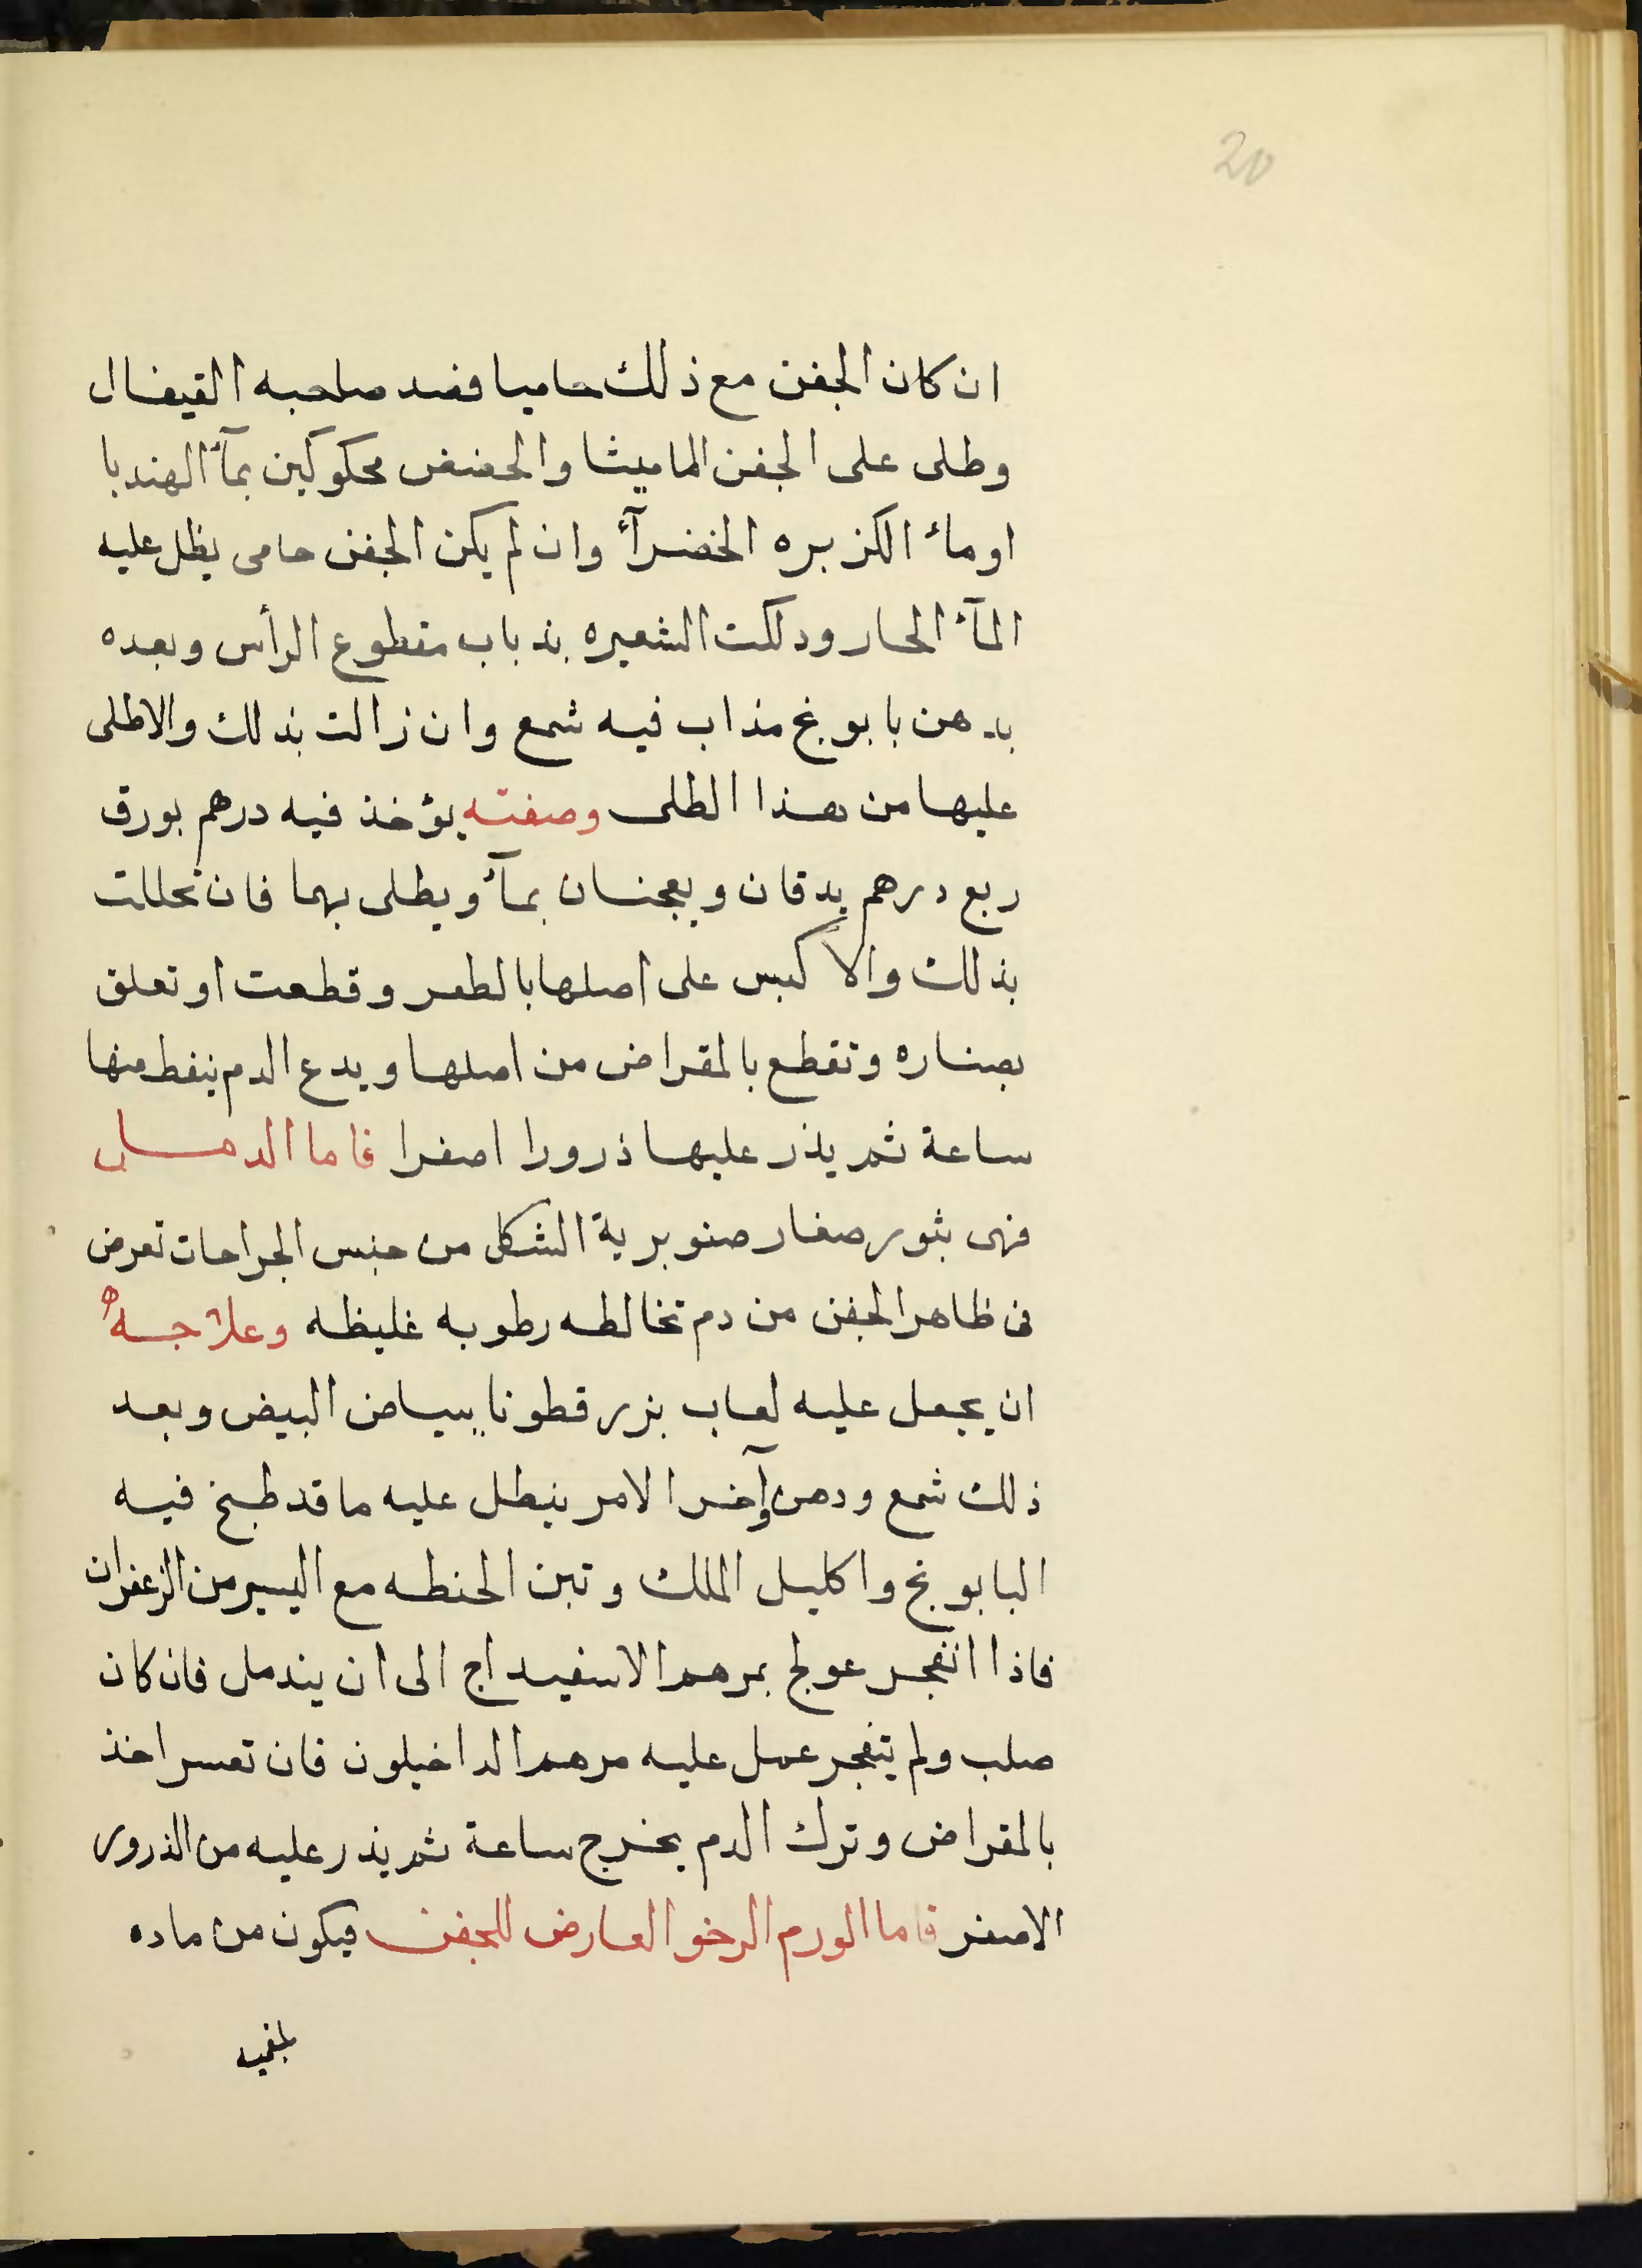 20
ان كان الجفن مع ذلك حاميا فصد صاحبه القيفال
وطلى على الجفن الماميثا والحضض محكوكين بمآء الهندبا
او ماء الكزبره الخضرآء وان لم يكن الجفن حامى يطل عليه
المآء الحار ودلكت الشعيره بذباب مقطوع الرأس وبعده
بدهن بابونج مذاب فيه شمع وان زالت بذلك والاطلى
عليها من هذا الطلى وصفته يؤخذ فيه درهم بورق
ربع درهم يدقان ويعجنان بمآء ويطلى بهما فان تحللت
بذلك والا كبس على اصلها بالطفر وقطعت او تعلق
بصناره وتقطع بالمقراض من اصلها ويدع الدم ينفط منها
ساعة ثم يذر عليها ذرورا اصفرا فاما الدمل
فهى بثور صغار صنوبرية الشكل من جنس الجراحات تعرض
فى ظاهر الجفن من دم تخالطه رطوبه غليظه وعلاجه
ان يجعل عليه لعاب بزر قطونا ببياض البيض وبعد
ذلك شمع ودهن وآخر الامر ينطل عليه ما قد طبخ فيه
البابونج واكليل الملك وتبن الحنطه مع اليسير من الزعفران
فاذا انفجر عولج بمرهم الاسفيداج الى ان يندمل فان كان
صلب ولم يتفجر عمل عليه مرهم الداخيلون فان تعسر اخذ
بالمقراض وترك الدم يخرج ساعة ثم يذر عليه من الذرور
الاصفر فاما الورم الرخو العارض للجفن فيكون من ماده
بلغميه